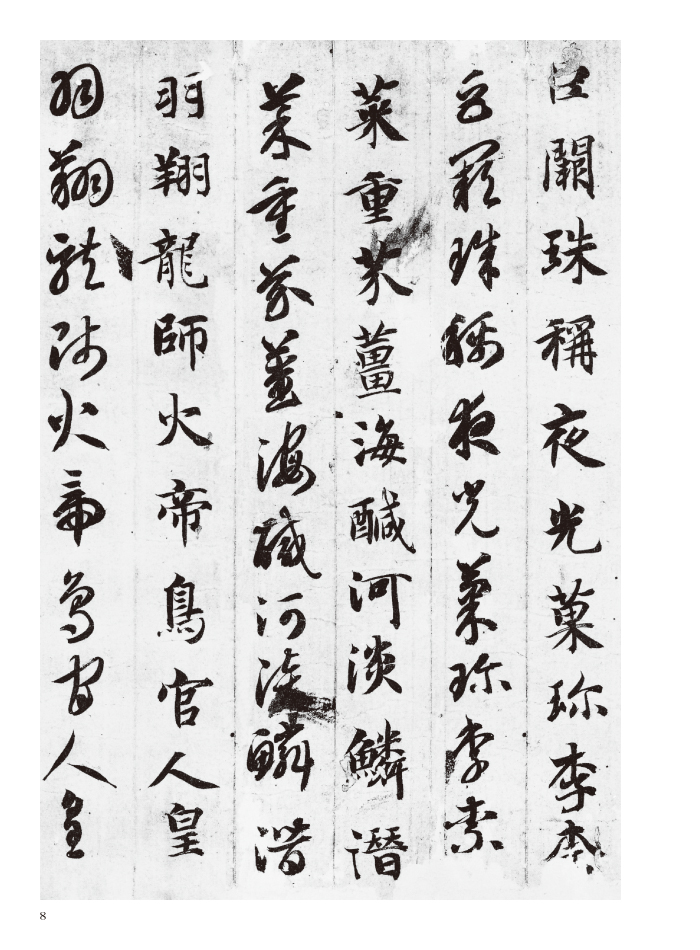 巨闕珠稱夜光菓珎李柰
巨闕珠稱夜光菓珎李柰
菜重芥薑海醎河淡鱗潜
菜重芥薑海醎河淡鱗潜
羽翔龍師火帝鳥官人皇
羽翔龍師火帝鳥官人皇
8